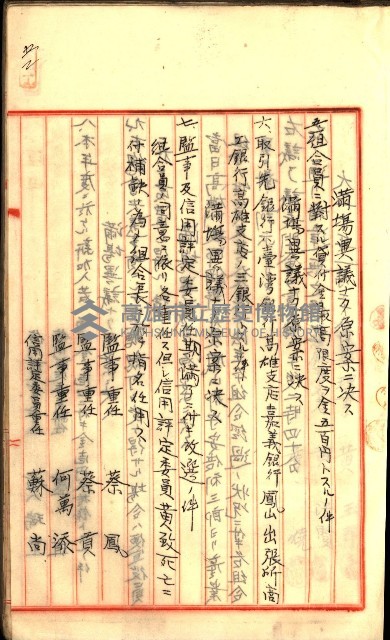 満場異議ナク原案ニ決ス
五、組合員ニ対スル貸付金最高限度ヲ金五百円トスルノ件
満場異議ナク原案ニ決ス
六、取引先銀行ヲ臺湾銀行高雄支店嘉義銀行鳳山出張所商
工銀行高雄支店ノ三銀行トスル件
満場異議ナク原案ニ決ス
七、監事及信用評定委員任期満了ニ付キ改選ノ件
組合員ノ同意ヲ得各重任ス但シ信用評定委員黄致死亡ニ
付補欠ノ為メ組合長ヨリ指名任用ス
監事重任 蔡鳳
監事重任 蔡貢
監事重任 何萬添
信用評定委員重任 蘇尚
高雄市立歷史博物館
KAOHSIUNG MUSEUM OF HISTORY